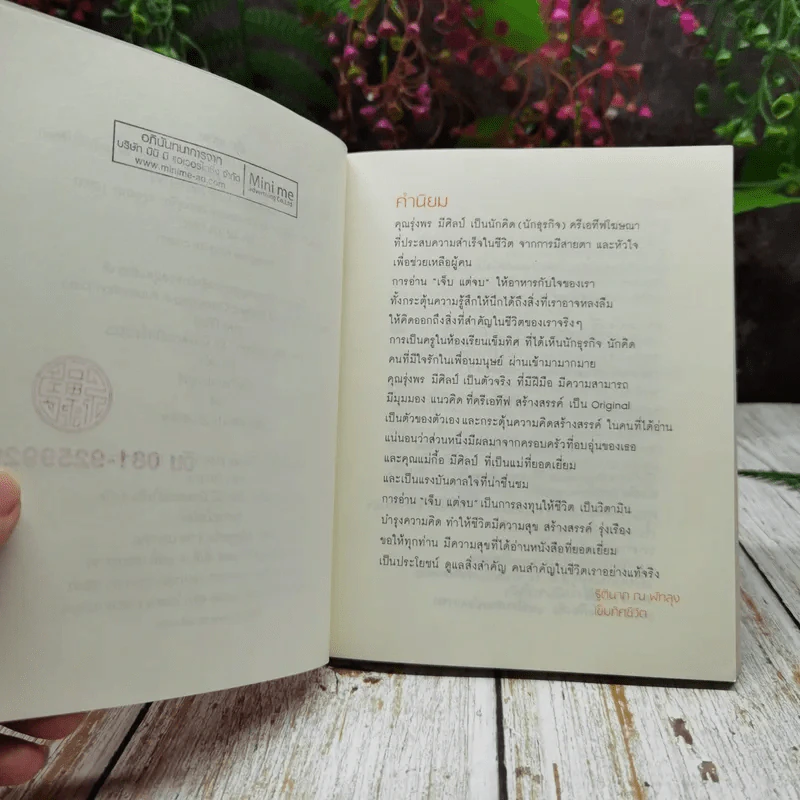 อภินันทนาการจาก
บริษัท มินิ มี แอดเวอร์ไทซิ่ง จำกัด
www.minime-ad.com
Mini me
advertising Co.,Ltd.
081-925992
คำนิยม
คุณรุ่งพร มีศิลป์ เป็นนักคิด (นักธุรกิจ) ครีเอทีฟโฆษณา
ที่ประสบความสำเร็จในชีวิต จากการมีสายตา และหัวใจ
เพื่อช่วยเหลือผู้คน
การอ่าน "เจ็บ แต่จบ" ให้อาหารกับใจของเรา
ทั้งกระตุ้นความรู้สึกให้นึกได้ถึงสิ่งที่เราอาจหลงลืม
ให้คิดออกถึงสิ่งที่สำคัญในชีวิตของเราจริงๆ
การเป็นครูในห้องเรียนเข็มทิศ ที่ได้เห็นนักธุรกิจ นักคิด
คนที่มีใจรักในเพื่อนมนุษย์ ผ่านเข้ามามากมาย
คุณรุ่งพร มีศิลป์ เป็นตัวจริง ที่มีฝีมือ มีความสามารถ
มีมุมมอง แนวคิด ที่ครีเอทีฟ สร้างสรรค์ เป็น Original
เป็นตัวของตัวเอง และกระตุ้นความคิดสร้างสรรค์ ในคนที่ได้อ่าน
แน่นอนว่าส่วนหนึ่งมีผลมาจากครอบครัวที่อบอุ่นของเธอ
และคุณแม่กื้อ มีศิลป์ ที่เป็นแม่ที่ยอดเยี่ยม
และเป็นแรงบันดาลใจที่น่าชื่นชม
การอ่าน "เจ็บ แต่จบ" เป็นการลงทุนให้ชีวิต เป็นวิตามิน
บำรุงความคิด ทำให้ชีวิตมีความสุข สร้างสรรค์ รุ่งเรือง
ขอให้ทุกท่าน มีความสุขที่ได้อ่านหนังสือที่ยอดเยี่ยม
เป็นประโยชน์ ดูแลสิ่งสำคัญ คนสำคัญในชีวิตเราอย่างแท้จริง
ฐิตินาถ ณ พัทลุง
เข็มทิศชีวิต